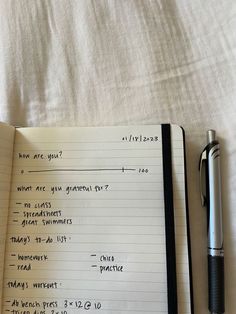 01/18/2023
how are you?
0 100
what are you grateful for?
- no class
- spreadsheets
- great swimmers
todays to-do list:
- homework - chiro
- read - practice
todays workout:
- db bench press 3x12 @ 10